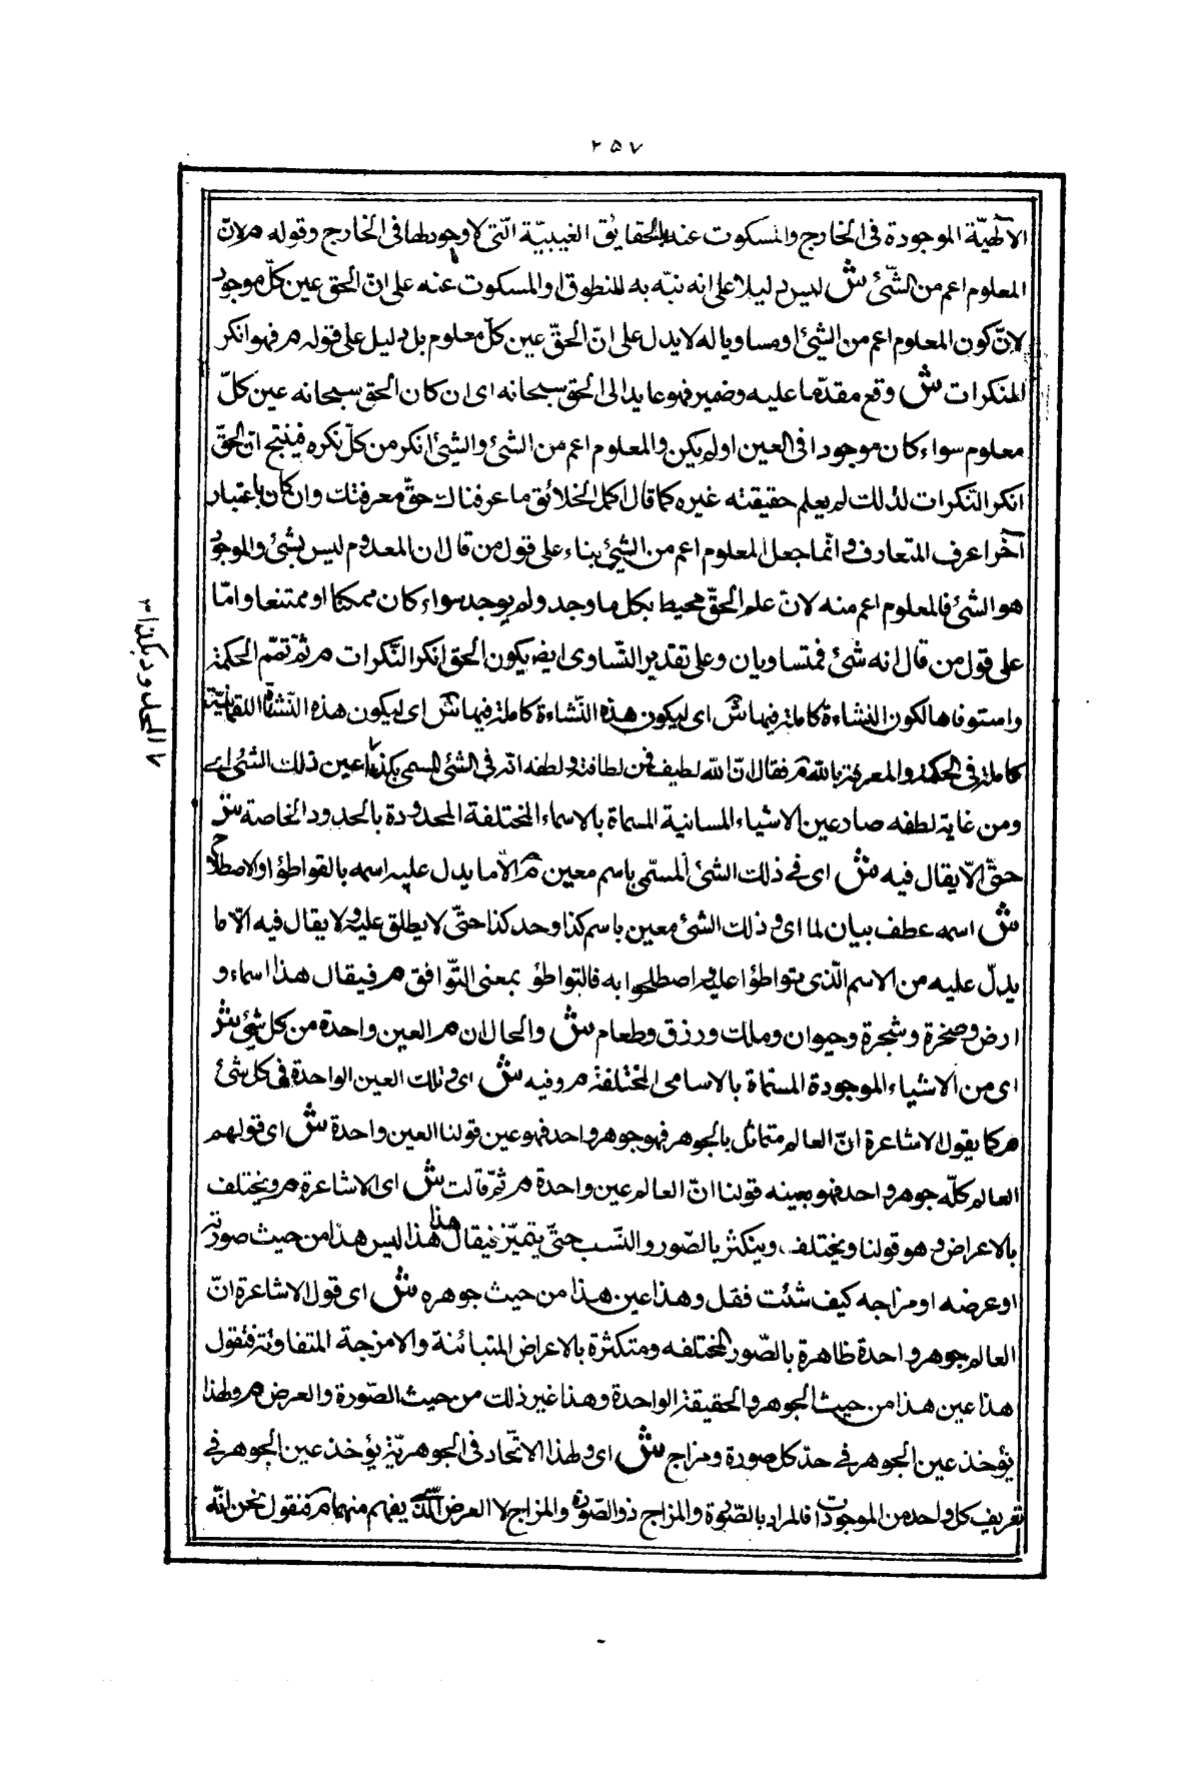 ٢٥٧
الالهيّة الموجودة فى الخارج والمسكوت عنه بالحقايق الغيبيّة الّتى لا وجود لها فى الخارج وقوله م لانّ
المعلوم اعم من الشّئ ش ليس دليلا على انه نبّه به للمنطوق او المسكوت عنه على انّ الحق عين كلّ موجود
لانّ كون المعلوم اعم من الشئ او مساويا له لا يدل على انّ الحقّ عين كلّ معلوم بل دليل على قوله م فهو انكر
المنكرات ش وقع مقدّما عليه وضمير فهو عايد الى الحق سبحانه اى ان كان الحق سبحانه عين كلّ
معلوم سواء كان موجودا فى العين او لم يكن والمعلوم اعم من الشئ والشئ انكر من كلّ نكره فينتج ان الحقّ
انكر النكرات لذلك لم يعلم حقيقته غيره كما قال اكمل الخلائق ما عرفناك حقّ معرفتك وان كان باعتبار
آخر اعرف المتعارف وانّما جعل المعلوم اعم من الشئ بناء على قول من قال ان المعدوم ليس بشئ والموجود
هو الشئ فالمعلوم اعم منه لانّ علم الحقّ محيط بكل ما وجد ولم يوجد سواء كان ممكنا او ممتنعا وامّا
على قول من قال انه شئ فمتساويان وعلى تقدير التّساوى ايضا يكون الحق انكر النّكرات م ثم تمّم الحكمة
واستوفاها لكون النشاءة كاملة فيها ش اى ليكون هذه النّشاءة كاملة فيها ش اى ليكون هذه النّشاة اللقمانيّة
كاملة فى الحكمة والمعرفة بالله م فقال انّ الله لطيف فمن لطافته ولطفه انّه فى الشئ المسمى بكذا عين ذلك الشئ اى
ومن غاية لطفه صار عين الاشياء المسماة بالاسماء المختلفة المحدودة بالحدود الخاصة ش
حتّى لا يقال فيه ش اى فى ذلك الشئ المسمّى باسم معين م الّا ما يدل عليه اسمه بالتواطؤ او الاصطلاح
ش اسمه عطف بيان لما اى وذلك الشئ معين باسم كذا وحد كذا حتّى لا يطلق عليه ولا يقال فيه الّا ما
يدلّ عليه من الاسم الّذى تواطؤا عليه واصطلحوا به فالتواطؤ بمعنى التّوافق م فيقال هذا اسماء و
ارض وصخرة وشجرة وحيوان وملك ورزق وطعام ش والحال ان م العين واحدة من كل شئ ش
اى من الاشياء الموجودة المسمّاة بالاسامى المختلفة م وفيه ش اى وتلك العين الواحدة فى كل شئ
م كما يقول الاشاعرة انّ العالم متماثل بالجوهر فهو جوهر واحد فهو عين قولنا العين واحدة ش اى قولهم
العالم كلّه جوهر واحد فهو بعينه قولنا انّ العالم عين واحدة م ثمّ قالت ش اى الاشاعرة م ويختلف
بالاعراض م وهو قولنا ويختلف ويتكثر بالصّور والنّسب حتّى يتميّز فيقال هذا ليس هذا من حيث صورته
او عرضه او مزاجه كيف شئت فقل وهذا عين هذا من حيث جوهره ش اى قول الاشاعرة انّ
العالم جوهر واحدة ظاهرة بالصّور المختلفه ومتكثرة بالاعراض المتبائنة والامزجة المتفاوتة فنقول
هذا عين هذا من حيث الجوهر والحقيقة الواحدة وهذا غير ذلك من حيث الصّورة والعرض م ولهذا
يؤخذ عين الجوهر فى حدّ كل صورة ومزاج ش اى ولهذا الاتّحاد فى الجوهريّة يؤخذ عين الجوهر فى
تعريف كل واحد من الموجودات فالمراد بالصّورة والمزاج ذو الصّورة والمزاج لا العرض الّذى يفهم منهما م فنقول نحن انّه